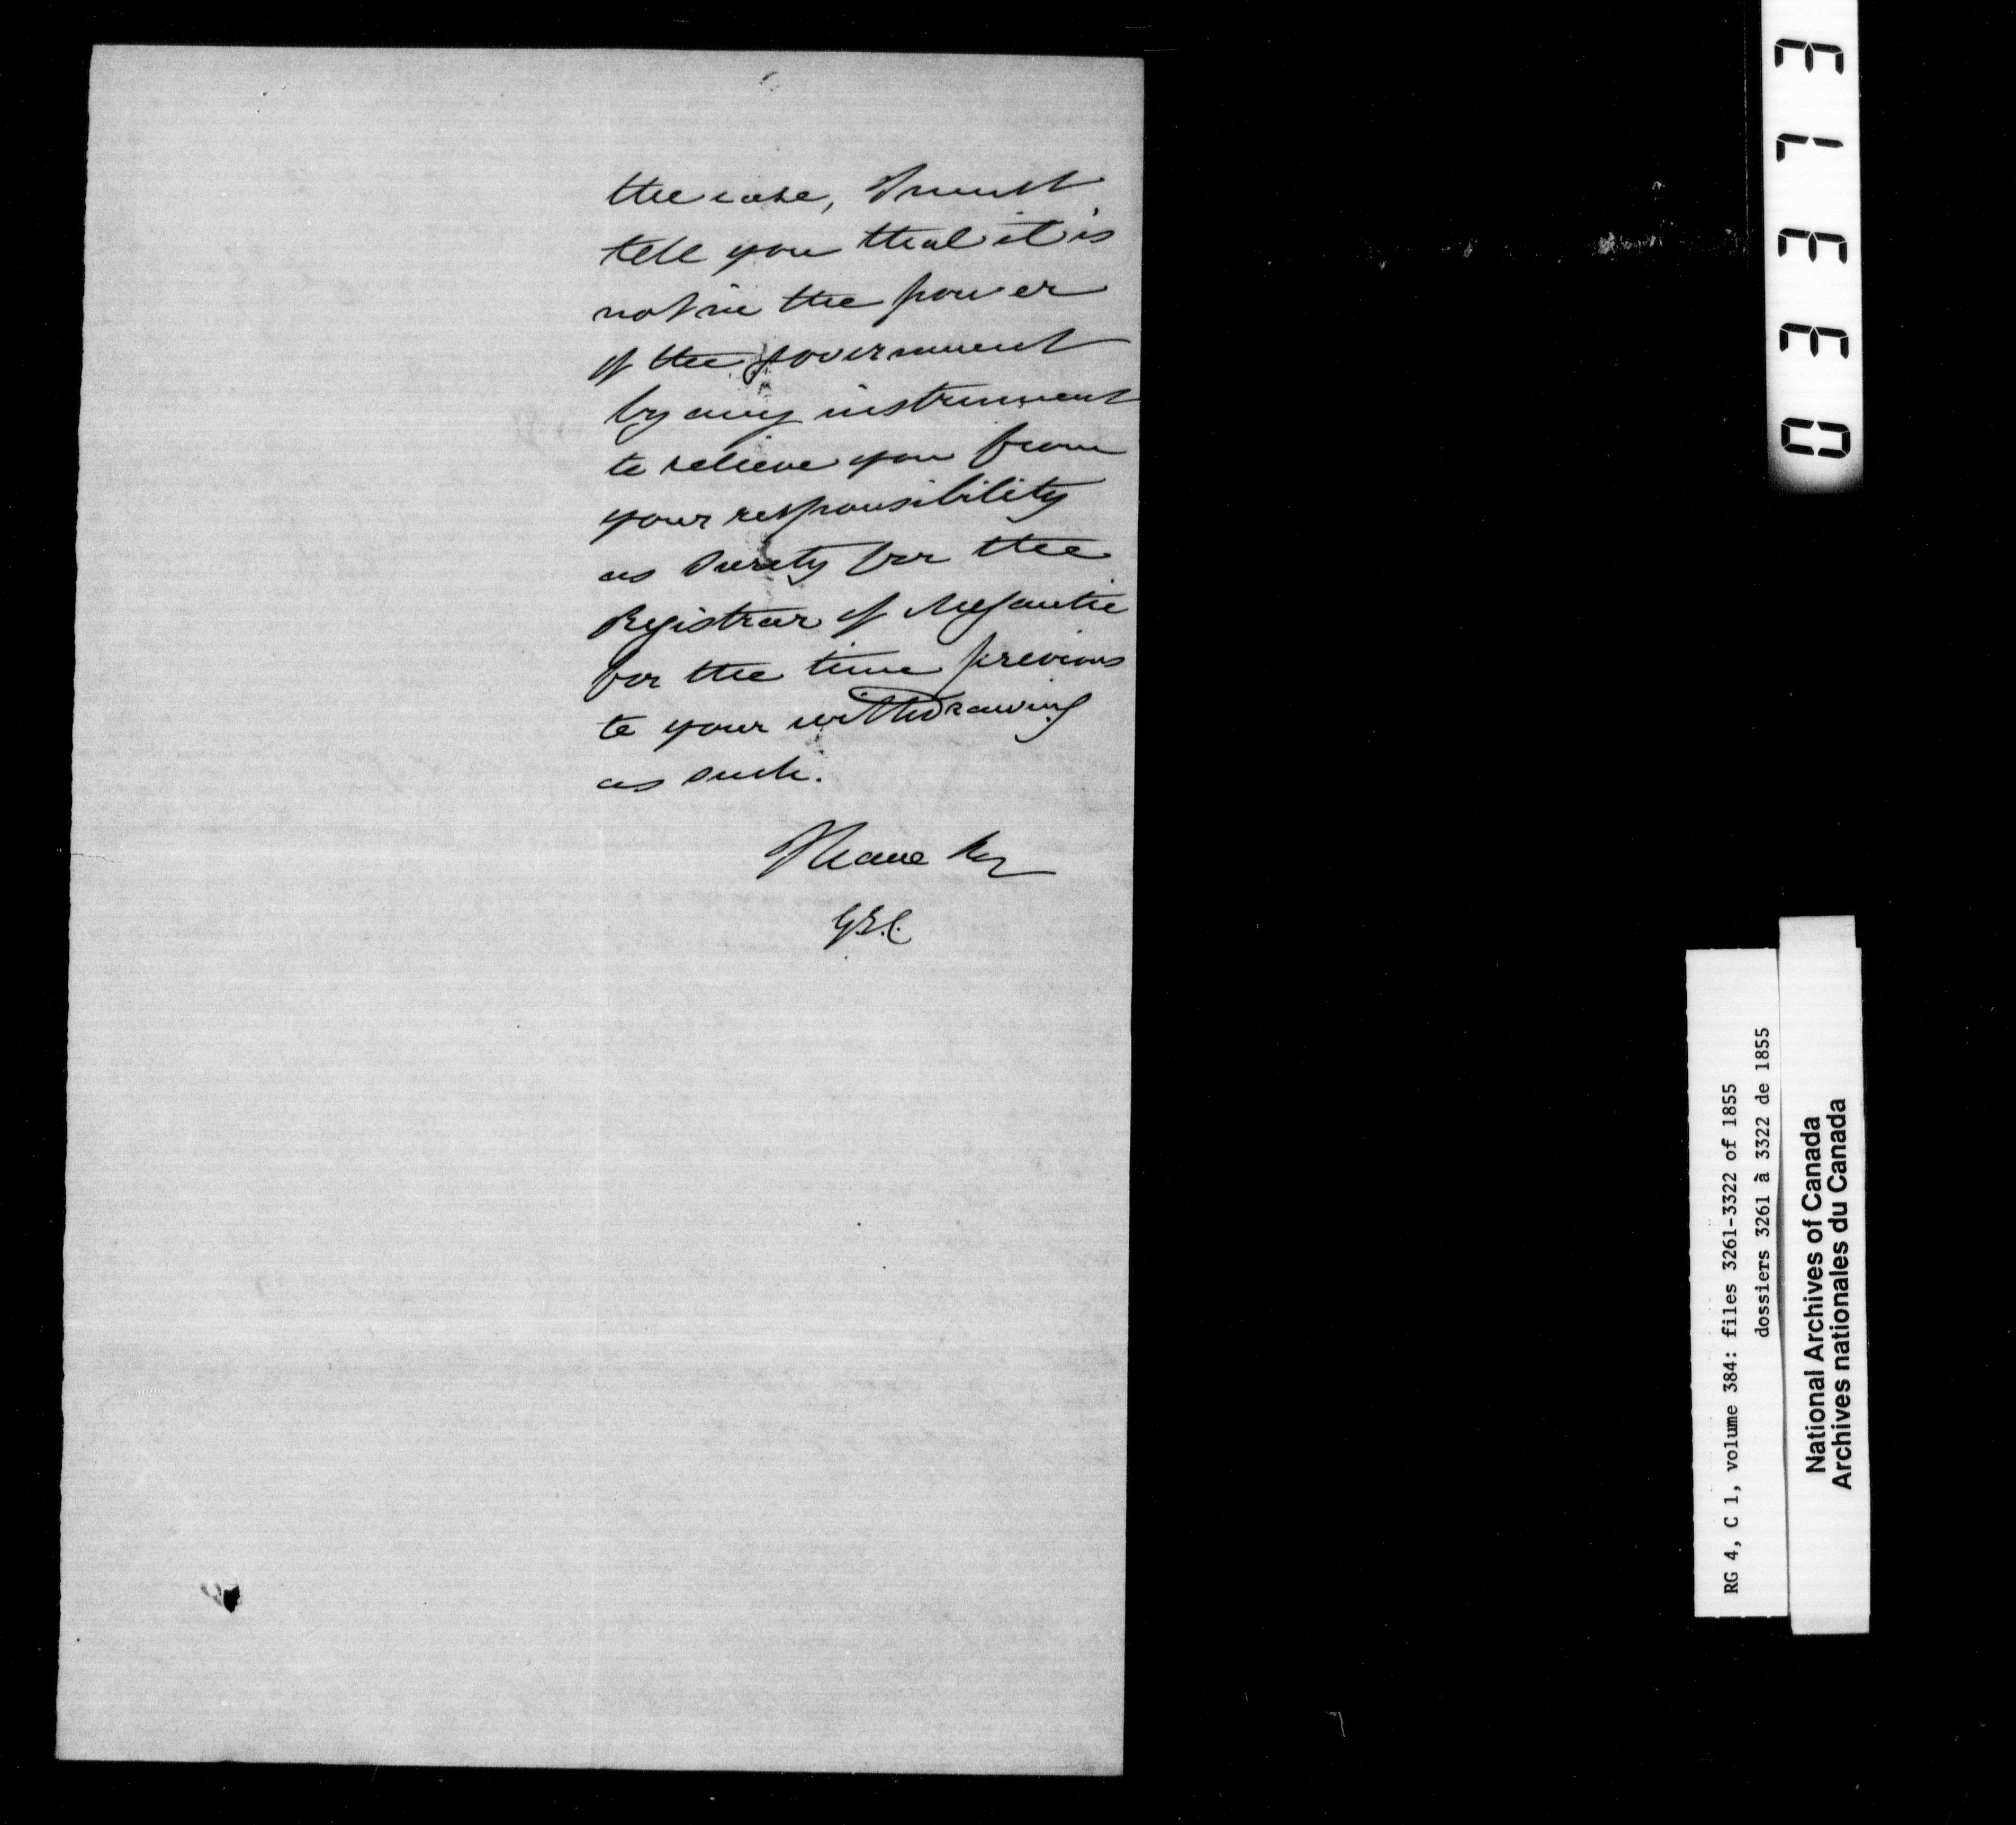 the case, I must
tell you that it is
not in the power
of the Government
by any instrument
to relieve you from
your responsibility
as Surety for the
Registrar of Megantic
for the time previous
to your withdrawing
as such.
I have &c
G.E.C.
03313
RG 4, C 1, volume 384: files 3261-3322 of 1855
dossiers 3261 à 3322 de 1855
National Archives of Canada
Archives nationales du Canada